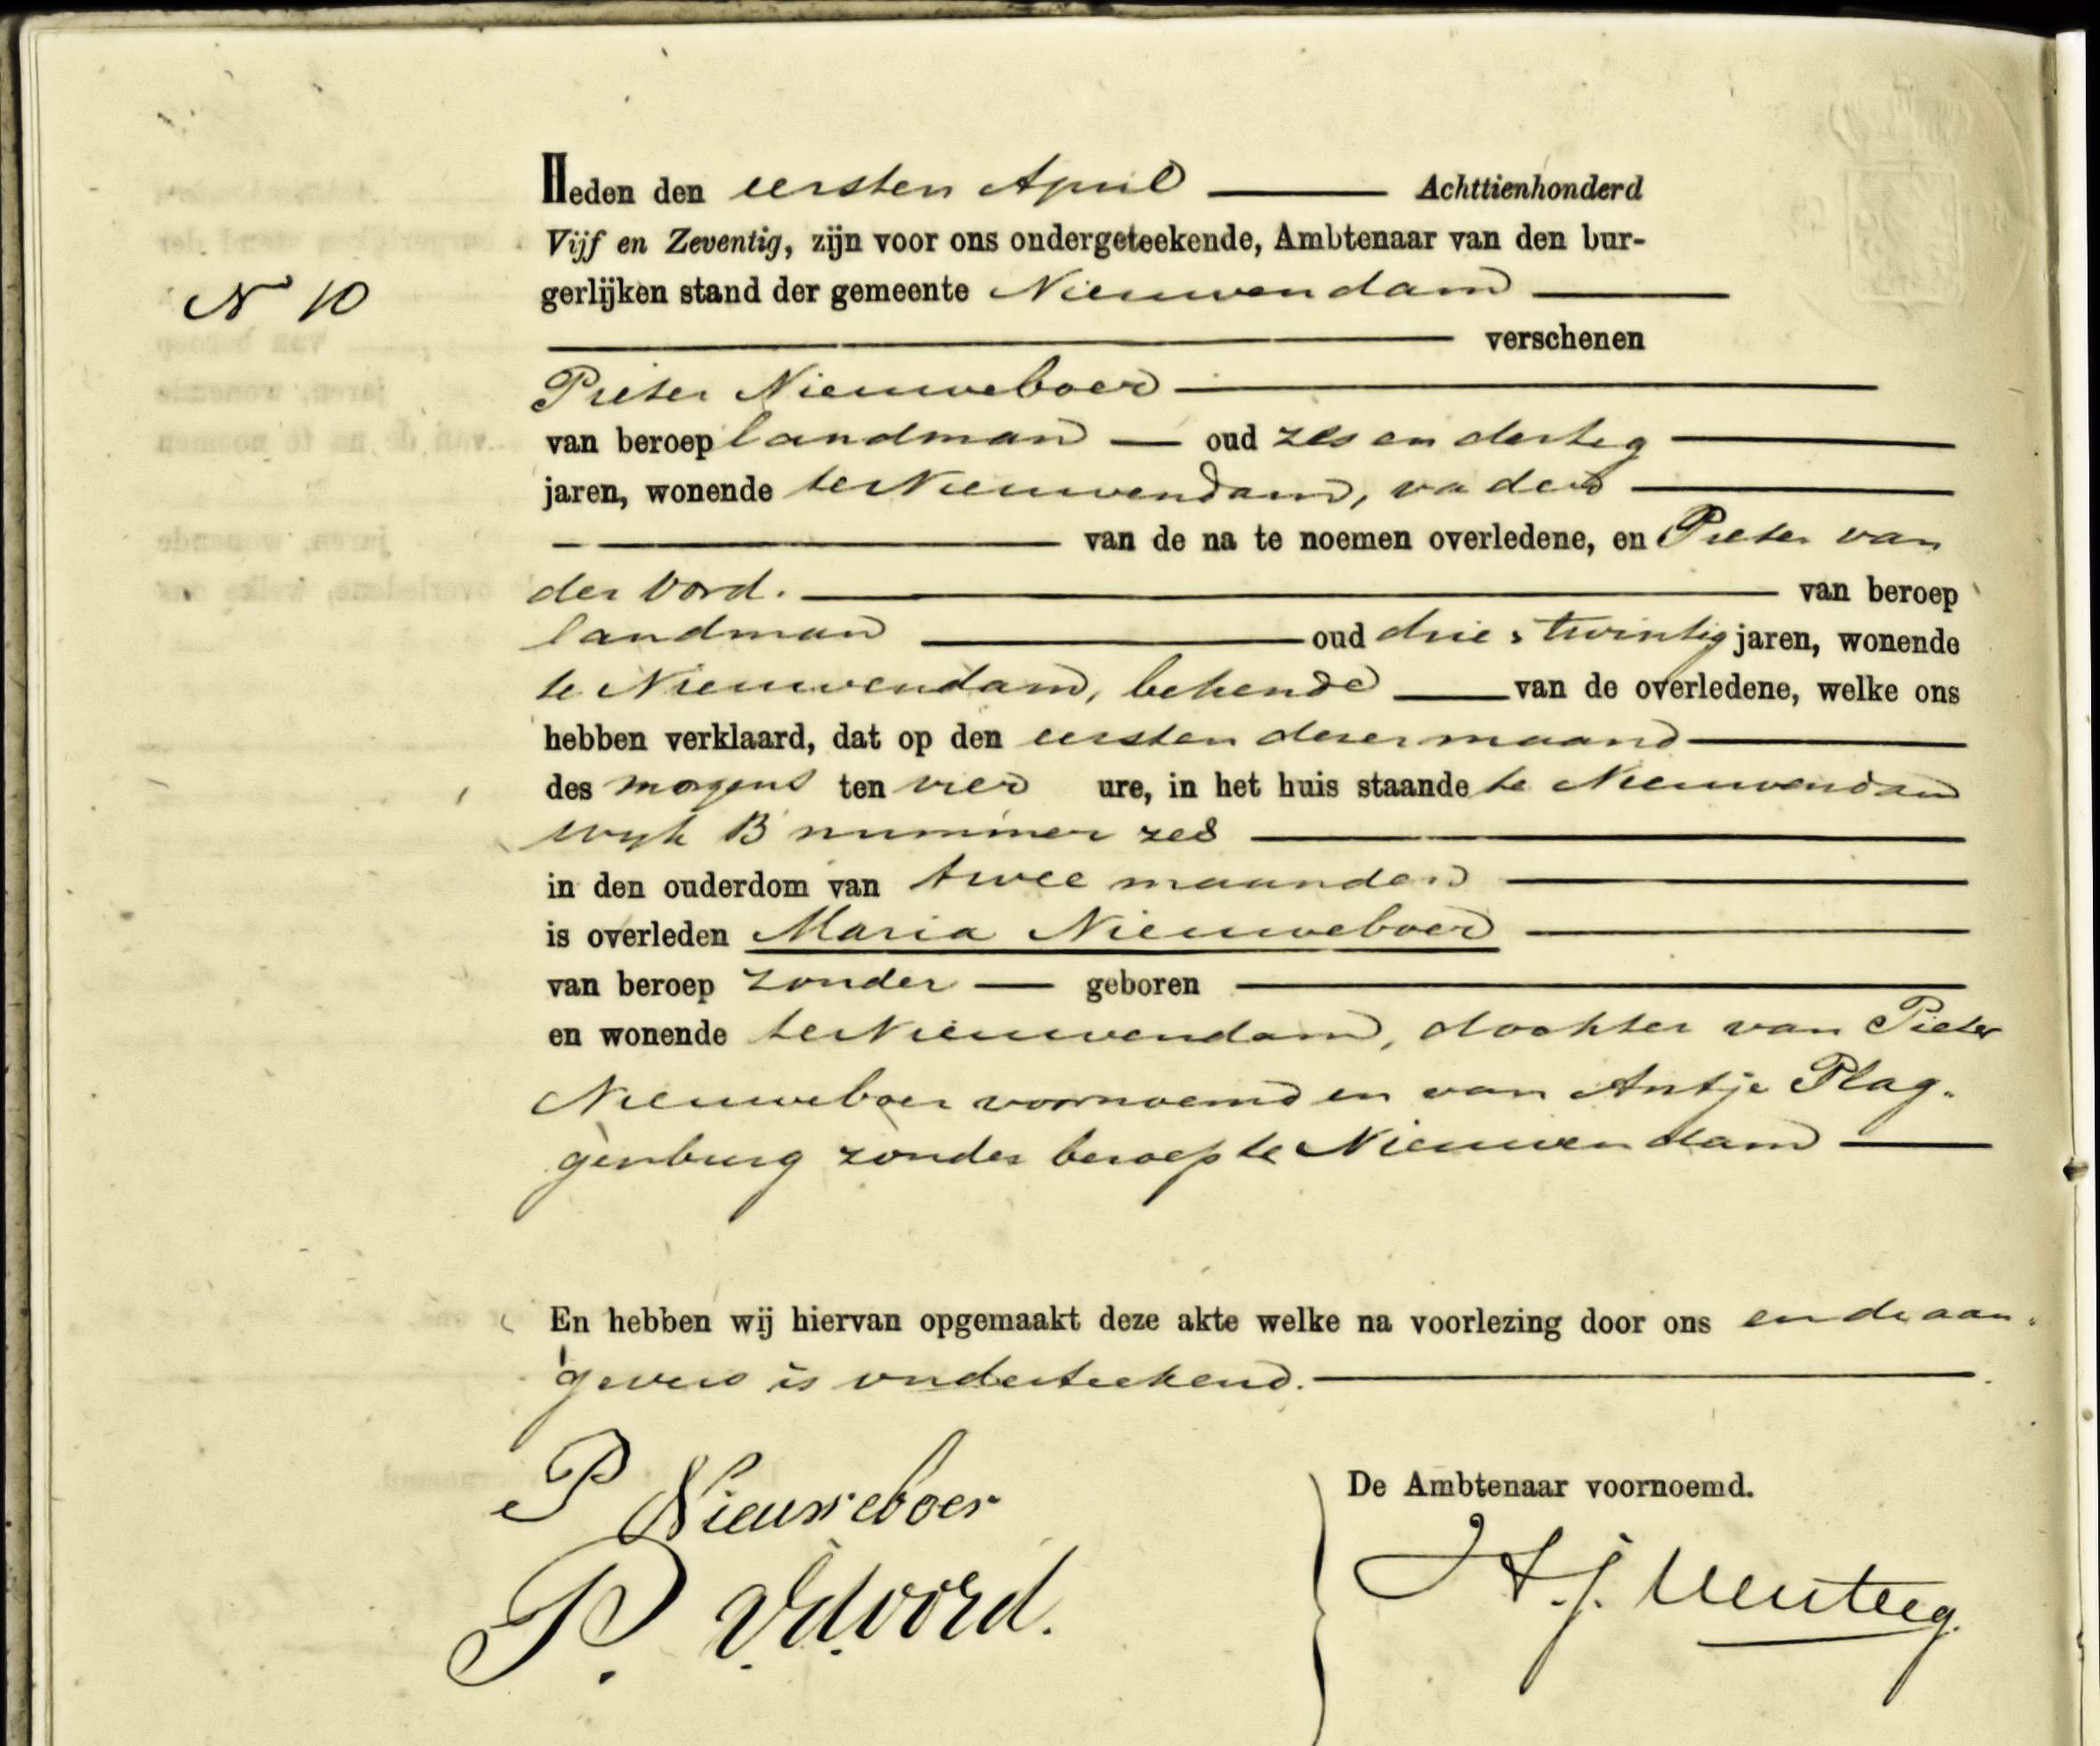 Heden den eersten April Achttienhonderd
Vijf en Zeventig, zijn voor ons ondergeteekende, Ambtenaar van den bur-
N 10
gerlijken stand der gemeente Nieuwendam
verschenen
Pieter Nieuweboer
van beroep landman oud zes en dertig
jaren, wonende te Nieuwendam, vader
van de na te noemen overledene, en Pieter van
der Vord.
van beroep
landman oud drie & twintig jaren, wonende
te Nieuwendam, bekende van de overledene, welke ons
hebben verklaard, dat op den eersten dezer maand
des morgens ten vier ure, in het huis staande te Nieuwendam
wyk B nummer zes
in den ouderdom van twee maanden
is overleden Maria Nieuweboer
van beroep zonder geboren
en wonende te Nieuwendam, dochter van Pieter
Nieuweboer voornoemd en van Antje Plag-
genburg zonder beroep te Nieuwendam
En hebben wij hiervan opgemaakt deze akte welke na voorlezing door ons en de aan-
gevers is onderteekend.
P Nieuweboer
P. v.d. Vord.
De Ambtenaar voornoemd.